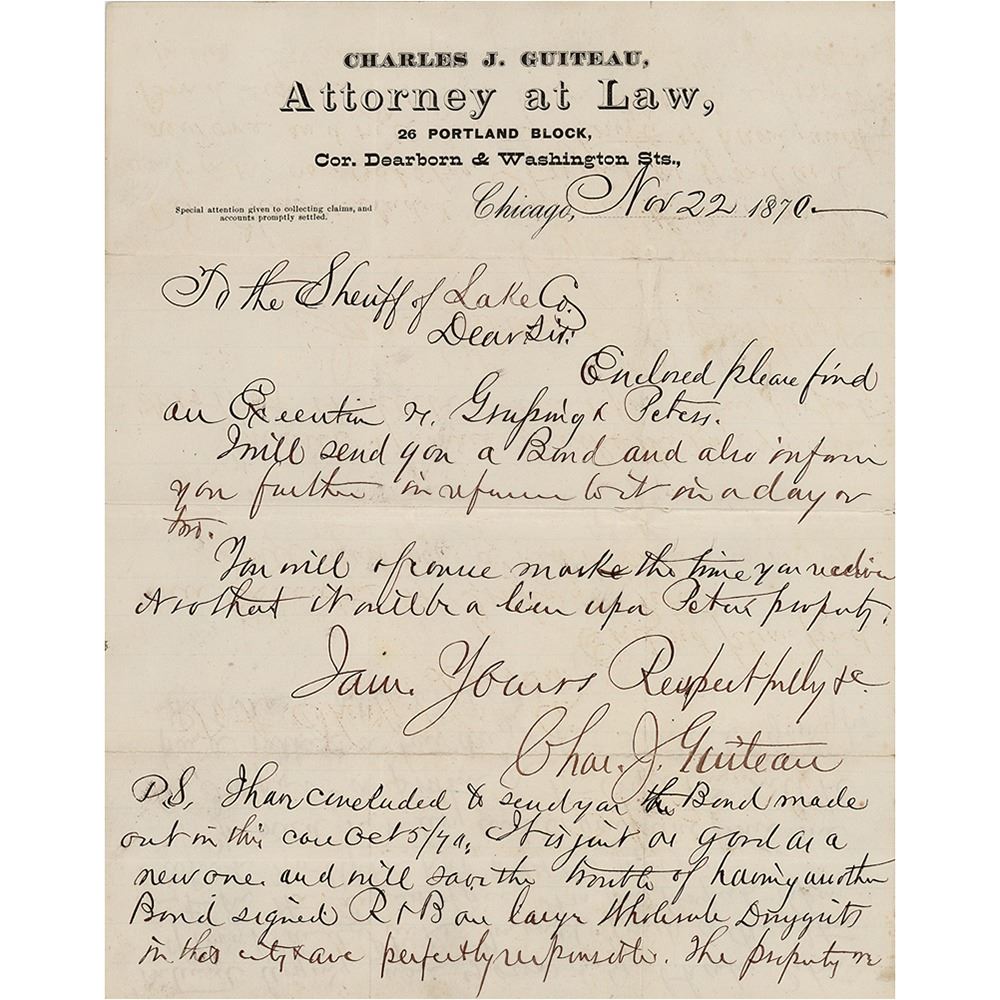 CHARLES J. GUITEAU,
Attorney at Law,
26 PORTLAND BLOCK,
Cor. Dearborn & Washington Sts.,
Special attention given to collecting claims, and
accounts promptly settled.
Chicago, Nov 22 1870.
To the Sheriff of Lake Co.
Dear Sir:
Enclosed please find
an Execution vs. Peters.
I will send you a Bond and also inform
you further in reference to it in a day or
two.
You will of course mark the time you receive
it so that it will be a lien upon Peters property.
I am. Yours Respectfully &c
Chas. J. Guiteau
P.S. I have concluded to send you the Bond made
out in this case Oct 5/70. It is just as good as a
new one. and will save the trouble of having another
Bond signed R & B are large Wholesale Druggists
in this city & are perfectly responsible. The property